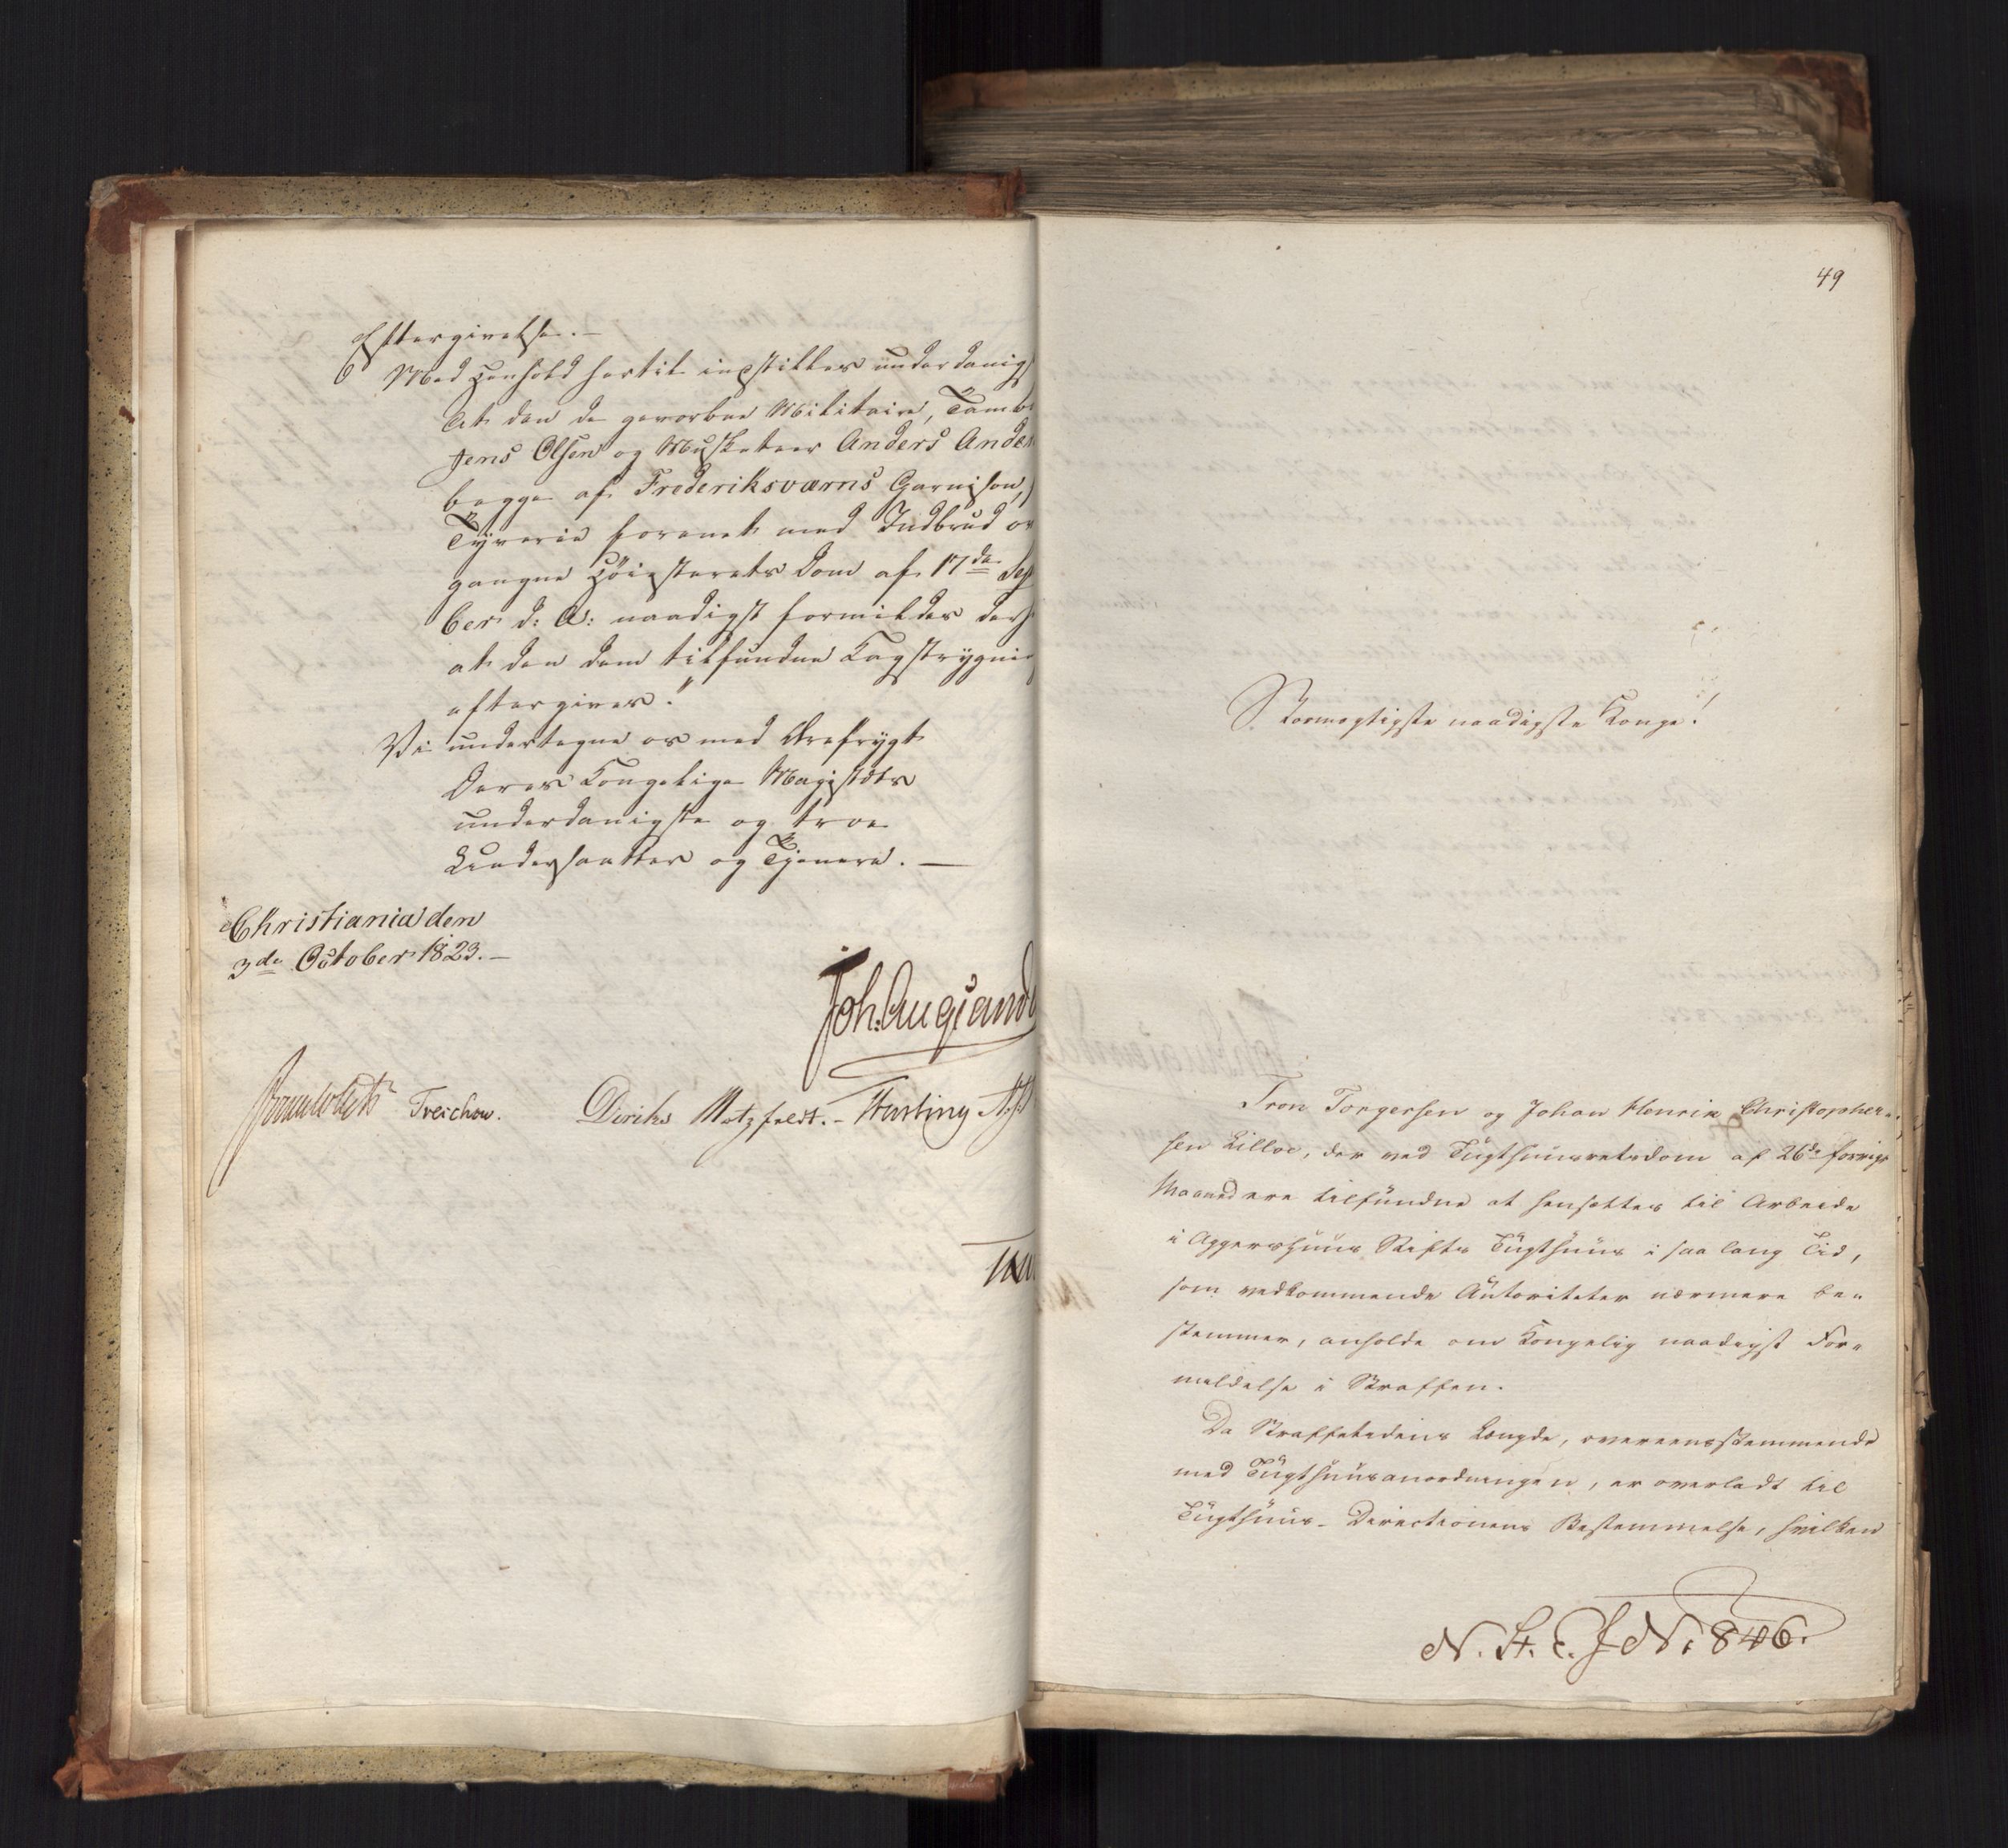 Eftergivelse. –
Med Henhold hertil indstilles underdanigst
At den de hvervede Militaire, Tamb
Jens Olsen og Musketeer Anders Ander
begge af Frederiksværns Garnison,
Tyverie forenet med Indbrud ov
gangne Høiesterets Dom af 17de Sep
ber d: A: naadigst formildes derh
at den dem tilfundne Kagstrygni
eftergives."
Vi undertegne os med Ærefrygt
Deres Kongelige Majestæts
underdanigste og troe
Undersaatter og Tjenere. –
Christiania den
3de October 1823. –
Joh: Aug: Sande
Treschow. Diriks Motzfeldt. – Hasting
49
Stormægtigste naadigste Konge!
Tron Torgersen og Johan Henrik Christopher„
sen Lilloe, der ved Tügthuusretsdom af 26de forrige
Maaned ere tilfundne at hensættes til Arbeide
i Aggershuus Stifts Tügthuus i saa lang Tid,
som vedkommende Autoriteter nærmere be„
stemmer, anholde om Kongelig naadigst For„
mildelse i Straffen.
Da Straffetidens Længde, overeensstemmende
med Tügthuusanordningen, er overladt til
Tügthuus-Directionens Bestemmelse, hvilken
N. St. C. J No: 846.